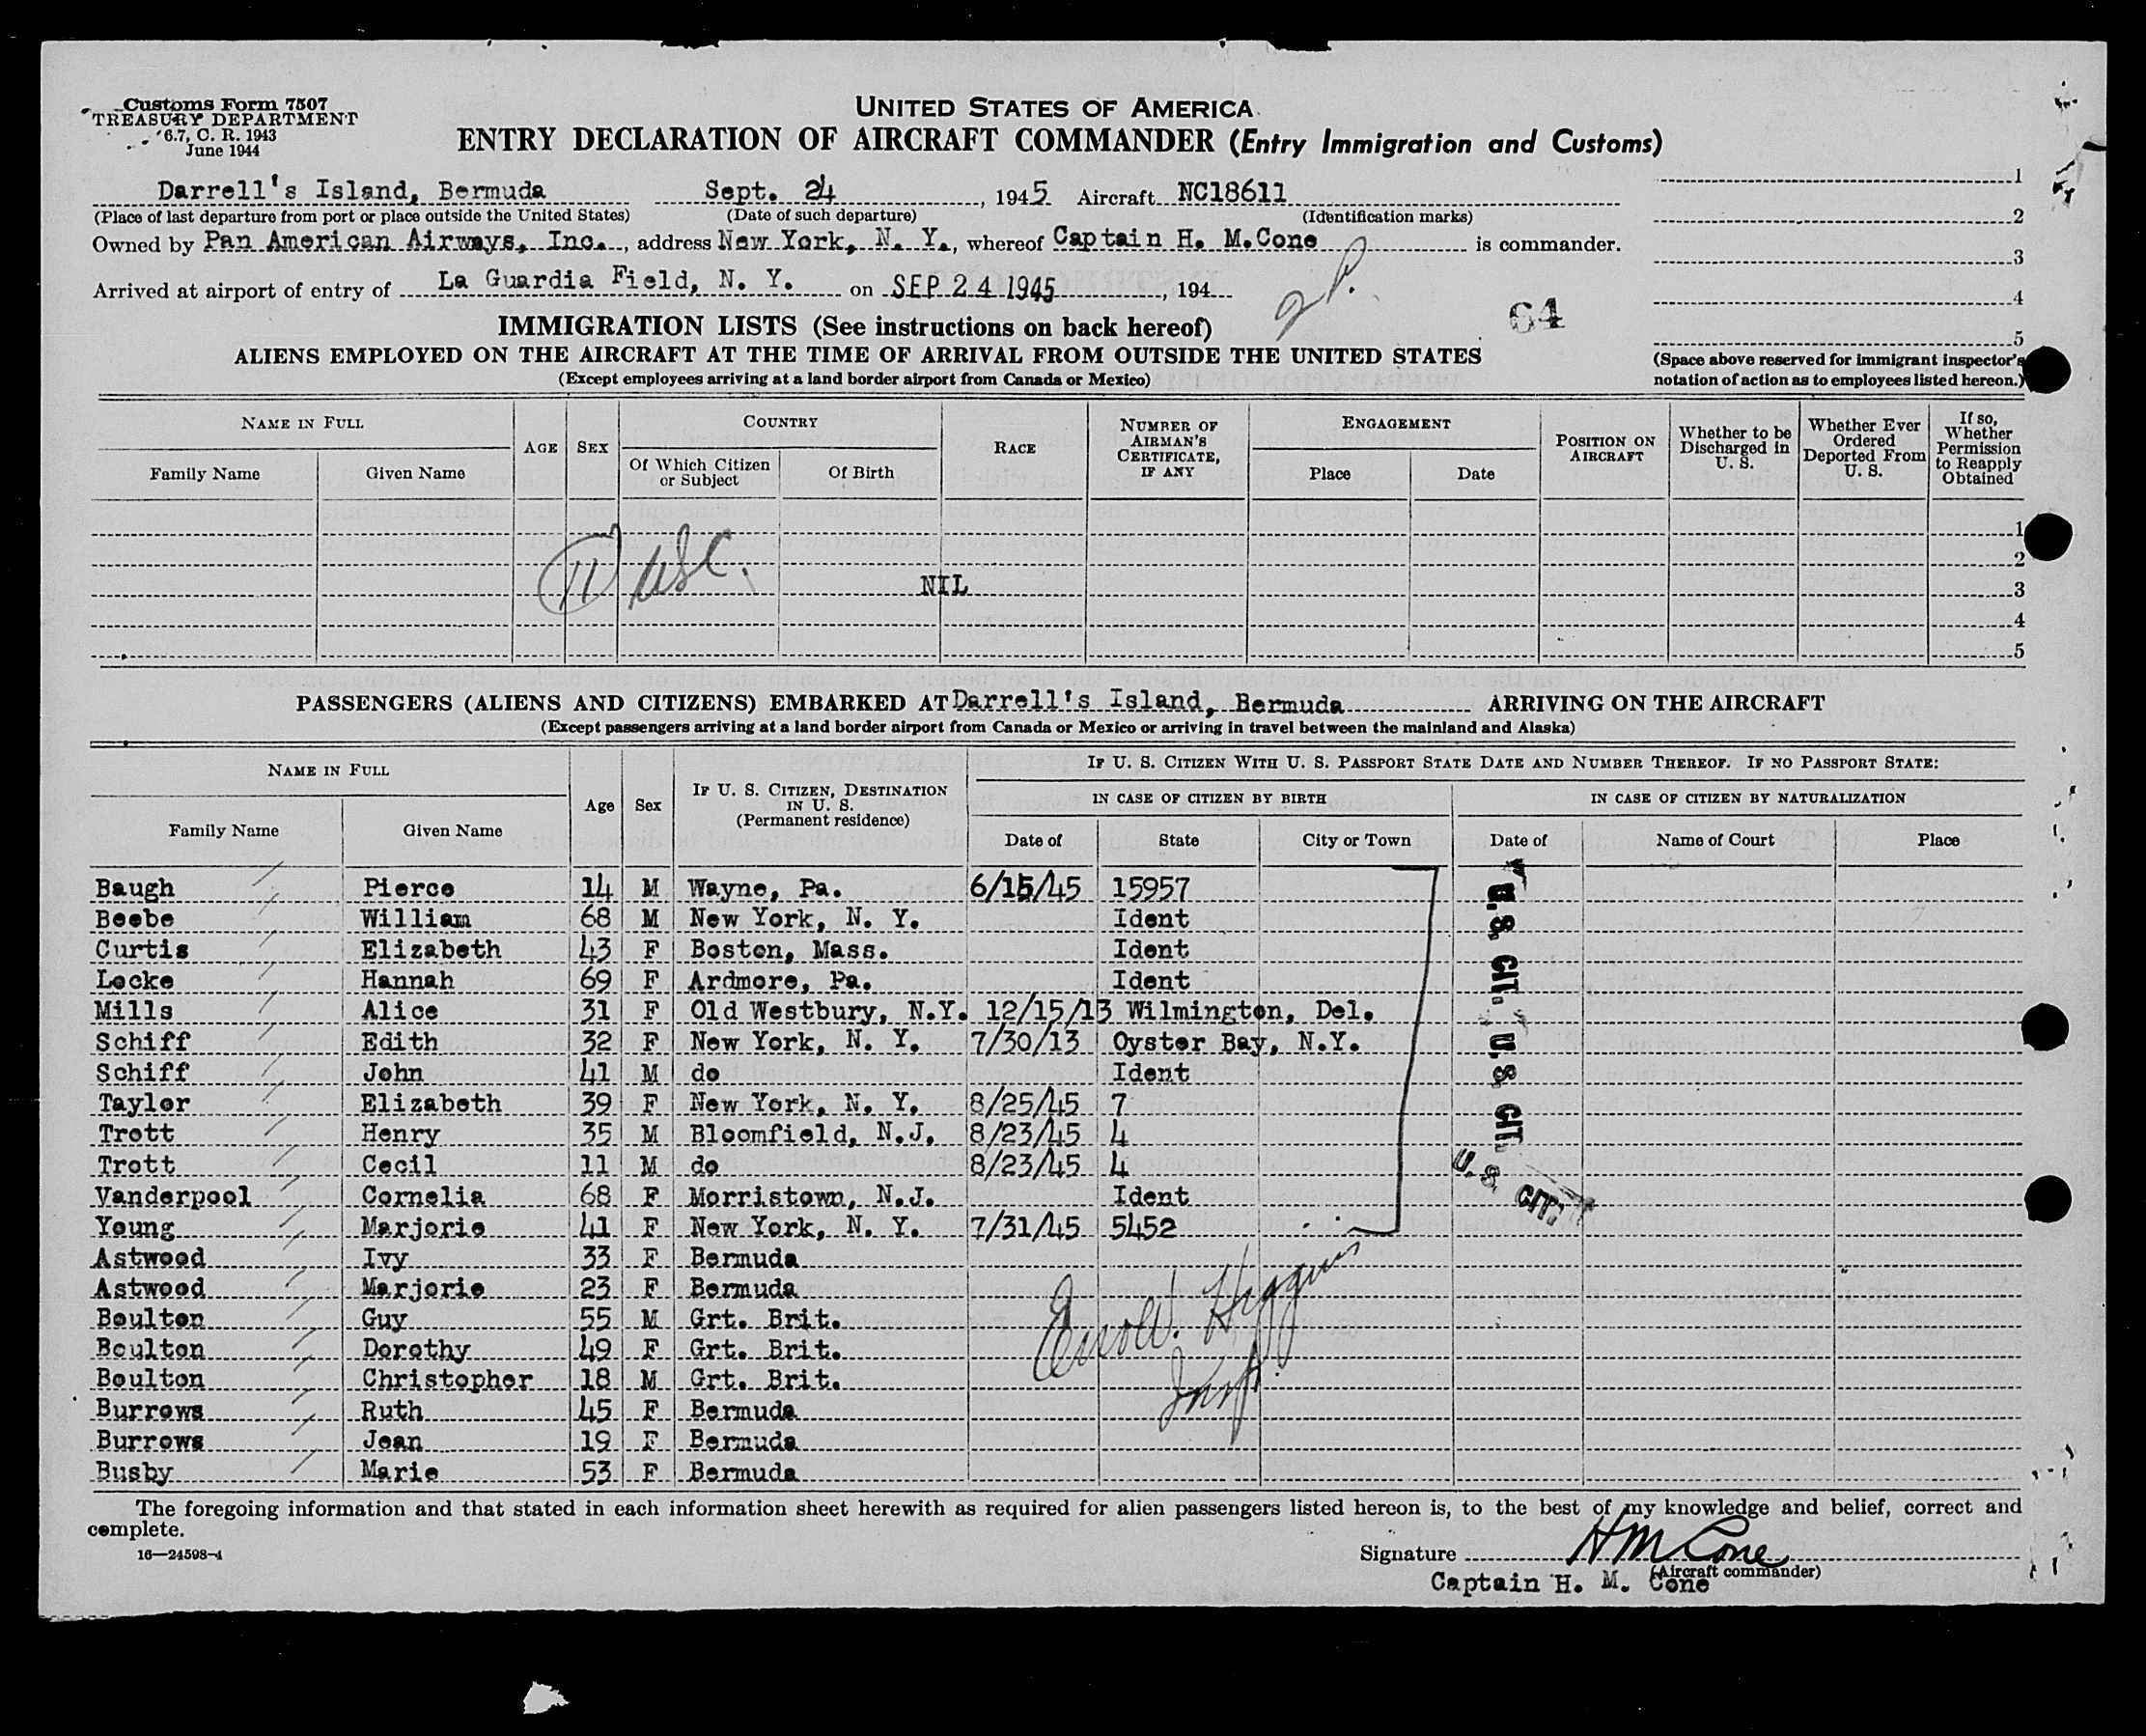 Customs Form 7507
TREASURY DEPARTMENT
6.7, C. R. 1943
June 1944
UNITED STATES OF AMERICA
ENTRY DECLARATION OF AIRCRAFT COMMANDER (Entry Immigration and Customs)
Darrell's Island, Bermuda Sept. 24, 1945 Aircraft NC18611 1
(Place of last departure from port or place outside the United States) (Date of such departure) (Identification marks) 2
Owned by Pan American Airways, Inc., address New York, N. Y., whereof Captain H. M.Cone is commander.
3
Arrived at airport of entry of La Guardia Field, N. Y. on SEP 24 1945, 194
4
64
IMMIGRATION LISTS (See instructions on back hereof)
5
ALIENS EMPLOYED ON THE AIRCRAFT AT THE TIME OF ARRIVAL FROM OUTSIDE THE UNITED STATES
(Space above reserved for immigrant inspector's
notation of action as to employees listed hereon.)
(Except employees arriving at a land border airport from Canada or Mexico)
NAME IN FULL
Family Name
Given Name
AGE
SEX
COUNTRY
Of Which Citizen
or Subject
Of Birth
RACE
NUMBER OF
AIRMAN'S
CERTIFICATE,
IF ANY
ENGAGEMENT
Place
Date
POSITION ON
AIRCRAFT
Whether to be
Discharged in
U. S.
Whether Ever
Ordered
Deported From
U. S.
If so,
Whether
Permission
to Reapply
Obtained
1
2
11 USC. NIL 3
4
5
PASSENGERS (ALIENS AND CITIZENS) EMBARKED AT Darrell's Island, Bermuda ARRIVING ON THE AIRCRAFT
(Except passengers arriving at a land border airport from Canada or Mexico or arriving in travel between the mainland and Alaska)
NAME IN FULL
Family Name
Given Name
Age
Sex
IF U. S. CITIZEN, DESTINATION
IN U. S.
(Permanent residence)
IF U. S. CITIZEN WITH U. S. PASSPORT STATE DATE AND NUMBER THEREOF. IF NO PASSPORT STATE:
IN CASE OF CITIZEN BY BIRTH
Date of
State
City or Town
IN CASE OF CITIZEN BY NATURALIZATION
Date of
Name of Court
Place
Baugh Pierce 14 M Wayne, Pa. 6/15/45 15957
Beebe William 68 M New York, N. Y. Ident
Curtis Elizabeth 43 F Boston, Mass. Ident
Locke Hannah 69 F Ardmore, Pa. Ident
Mills Alice 31 F Old Westbury, N.Y. 12/15/13 Wilmington, Del.
Schiff Edith 32 F New York, N. Y. 7/30/13 Oyster Bay, N.Y.
Schiff John 41 M do Ident
Taylor Elizabeth 39 F New York, N. Y. 8/25/45 7
Trott Henry 35 M Bloomfield, N.J. 8/23/45 4
Trott Cecil 11 M do 8/23/45 4
Vanderpool Cornelia 68 F Morristown, N.J. Ident
Young Marjorie 41 F New York, N. Y. 7/31/45 5452
U. S. CIT.
U. S. CIT.
U. S. CIT.
Astwood Ivy 33 F Bermuda
Astwood Marjorie 23 F Bermuda
Boulton Guy 55 M Grt. Brit.
Boulton Dorothy 49 F Grt. Brit.
Boulton Christopher 18 M Grt. Brit.
Burrows Ruth 45 F Bermuda
Burrows Jean 19 F Bermuda
Busby Marie 53 F Bermuda
The foregoing information and that stated in each information sheet herewith as required for alien passengers listed hereon is, to the best of my knowledge and belief, correct and
complete.
16—24598-4
Signature H M Cone
(Aircraft commander)
Captain H. M. Cone